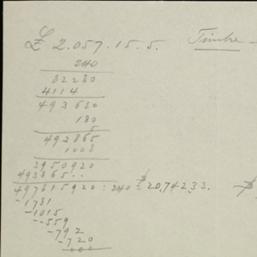 £ 2.057.15.5. Timbre -
240
82280
4114
493680
180
5
493865
1008
3950920
493865..
497815920 : 240 = 20,742,33.
-1781
-1015
--559
-792
-720
000